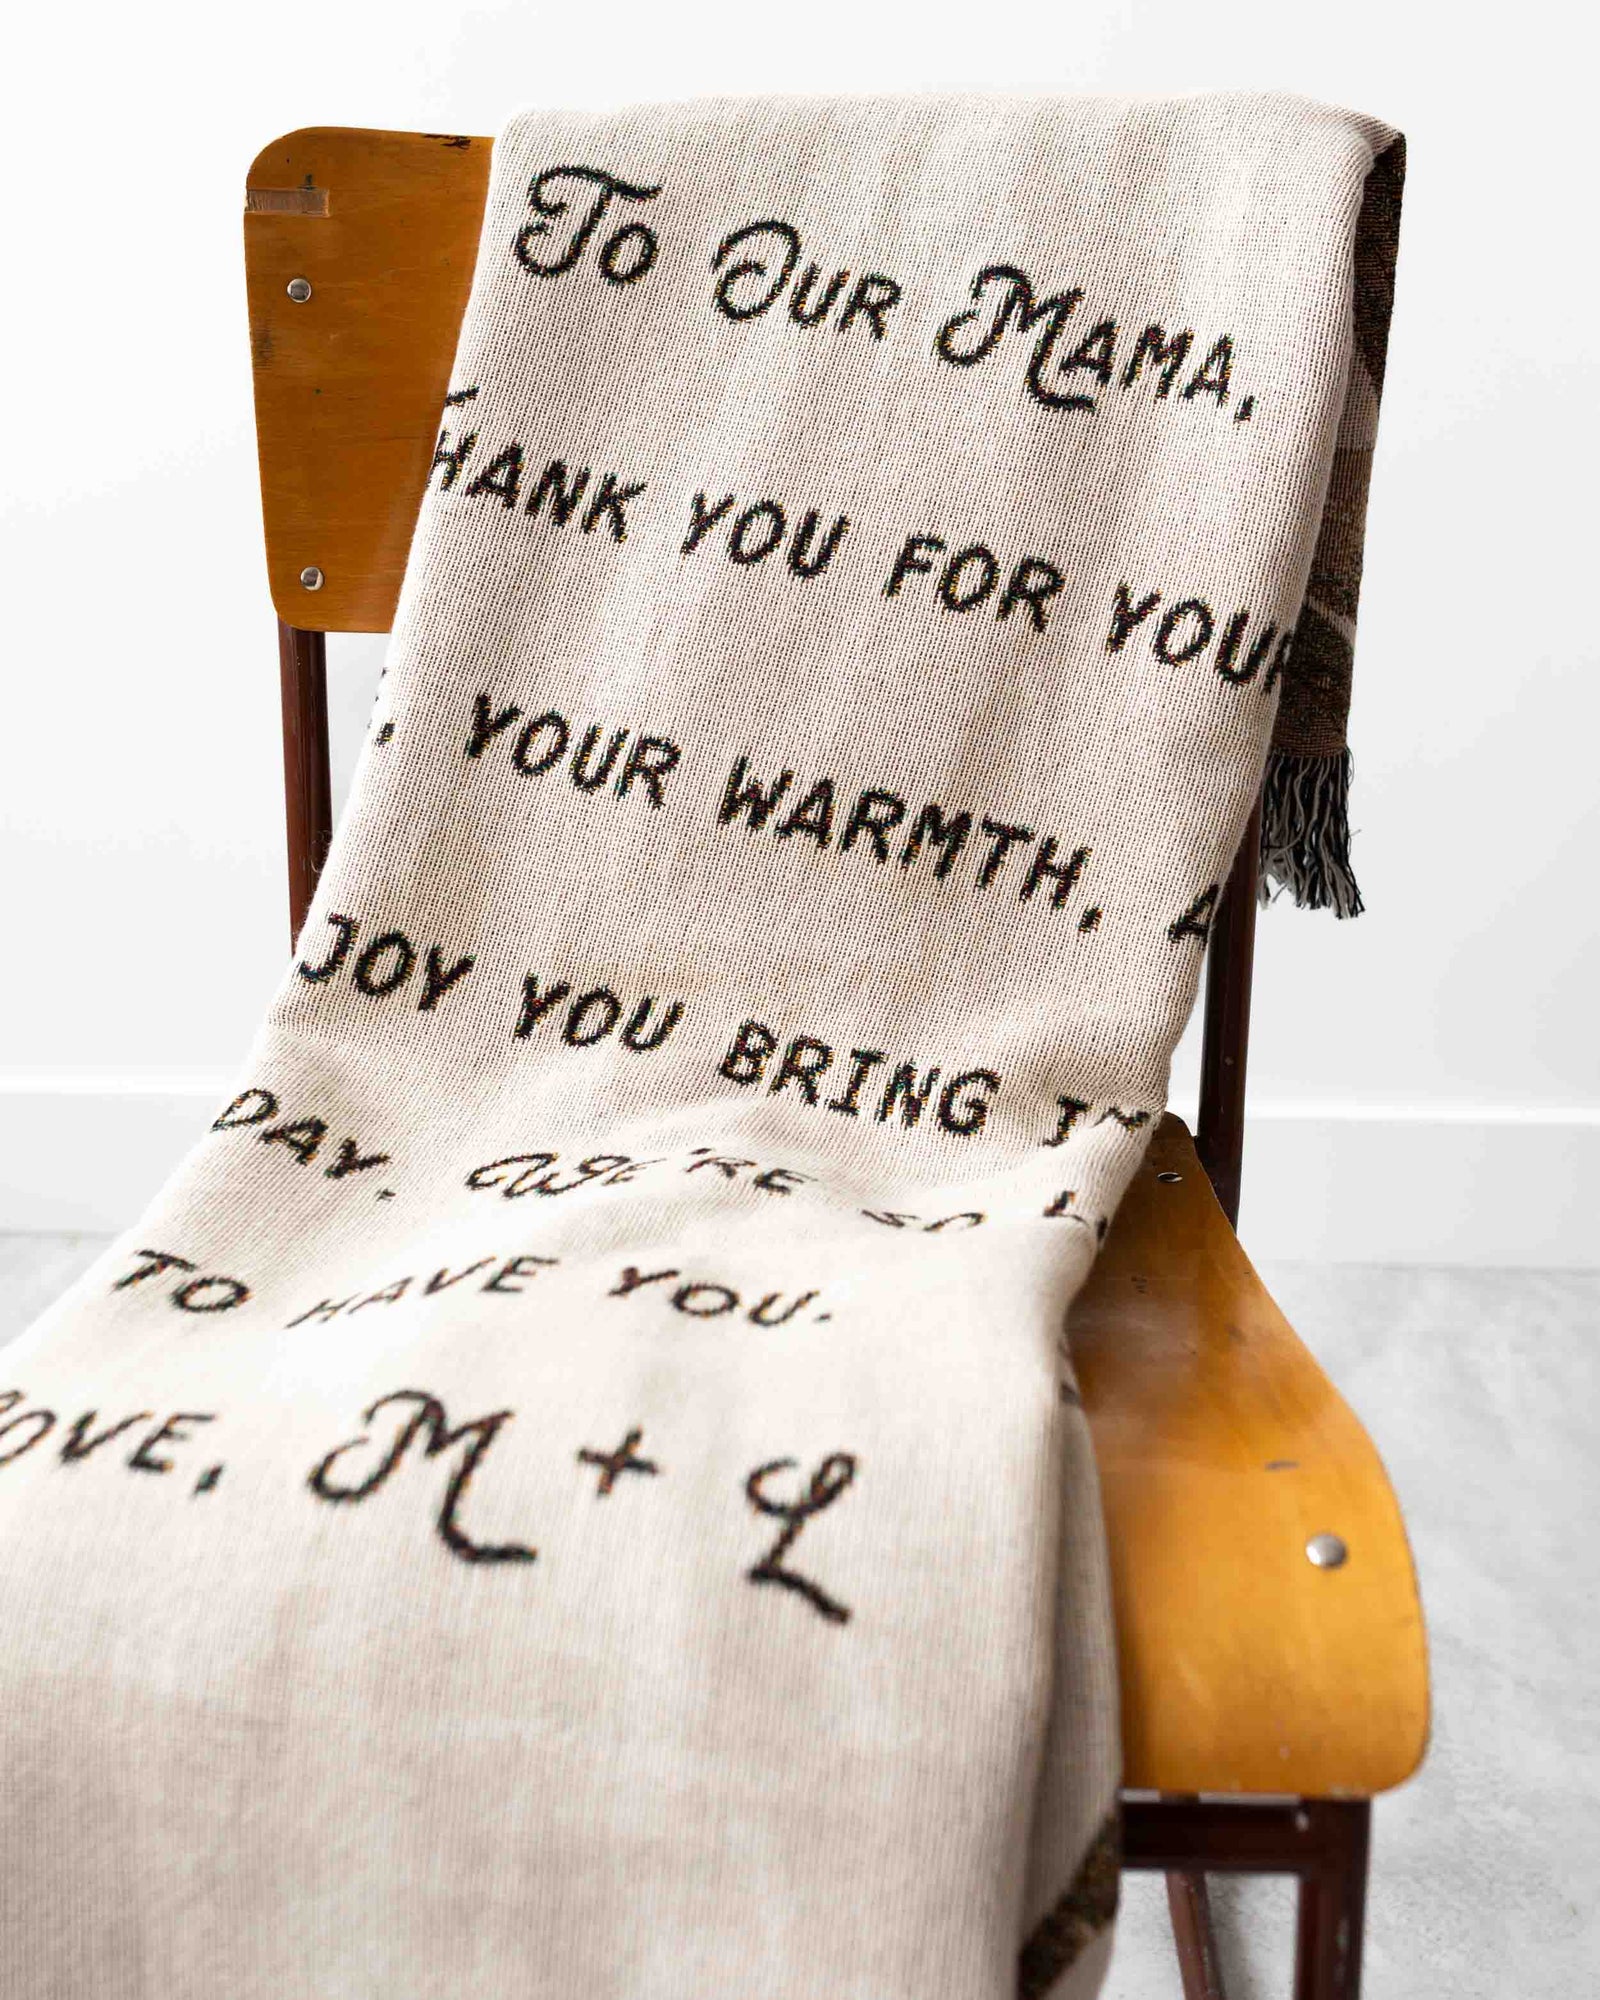 To Our Mama,
THANK YOU FOR YOUR
, YOUR WARMTH, A
JOY YOU BRING IN
DAY. WE'RE SO L
TO HAVE YOU.
LOVE, M + L